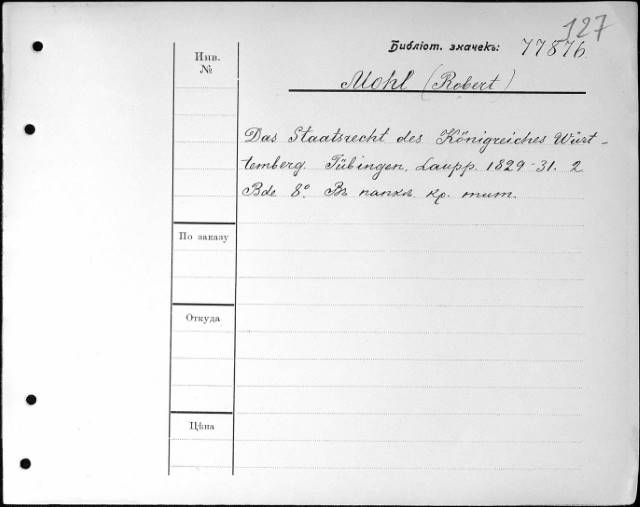 127
Библіот. значекъ: 77876
Инв.
№
Mohl (Robert)
Das Staatsrecht des Königreiches Würt-
temberg. Tübingen, Laupp. 1829-31. 2
Bde 8°. Въ папкѣ кр. тит.
По заказу
Откуда
Цѣна